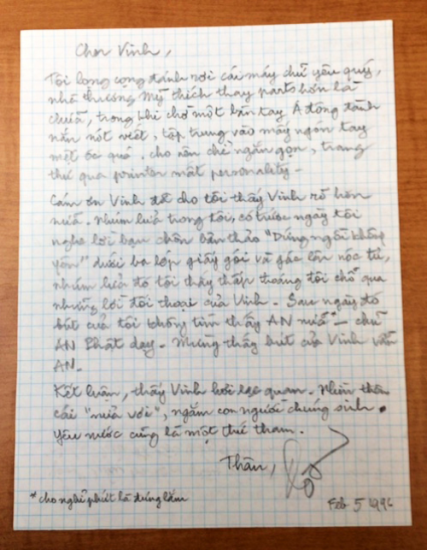 Chơn Vinh,
Tôi long cong đánh rơi cái máy chữ yêu quý,
nhà thương Mỹ thích thay parts hơn là
chữa, trong khi chờ một bàn tay Á đông đành
nắn nót viết, tập trung vào mấy ngón tay
mệt óc quá. cho nên chỉ ngắn gọn, trang
thư qua printer mất personality.
Cám ơn Vinh đã cho tôi thấy Vinh rõ hơn
nữa. Nhúm lửa trong tôi, có trước ngày tôi
nghe lời bạn chôn bản thảo "Đứng ngồi không
yên" dưới ba lớp giấy gói và gác lên nóc tủ,
nhúm lửa đó tôi thấy thấp thoáng tôi chỗ qua
những lời tôi thoại của Vinh. Sau ngày đó
bút của tôi không tìm thấy AN nữa* - chữ
AN Nhật dạy. Mừng thấy bút của Vinh vẫn
AN.
Kết luận, thấy Vinh hơi lạc quan. Nhìn thân
cái "nửa vơi", ngắm con người chúng sinh.
Yêu nước cũng là một thứ tham.
Thân,
* cho nghỉ phứt là đúng lắm
Feb 5 1996